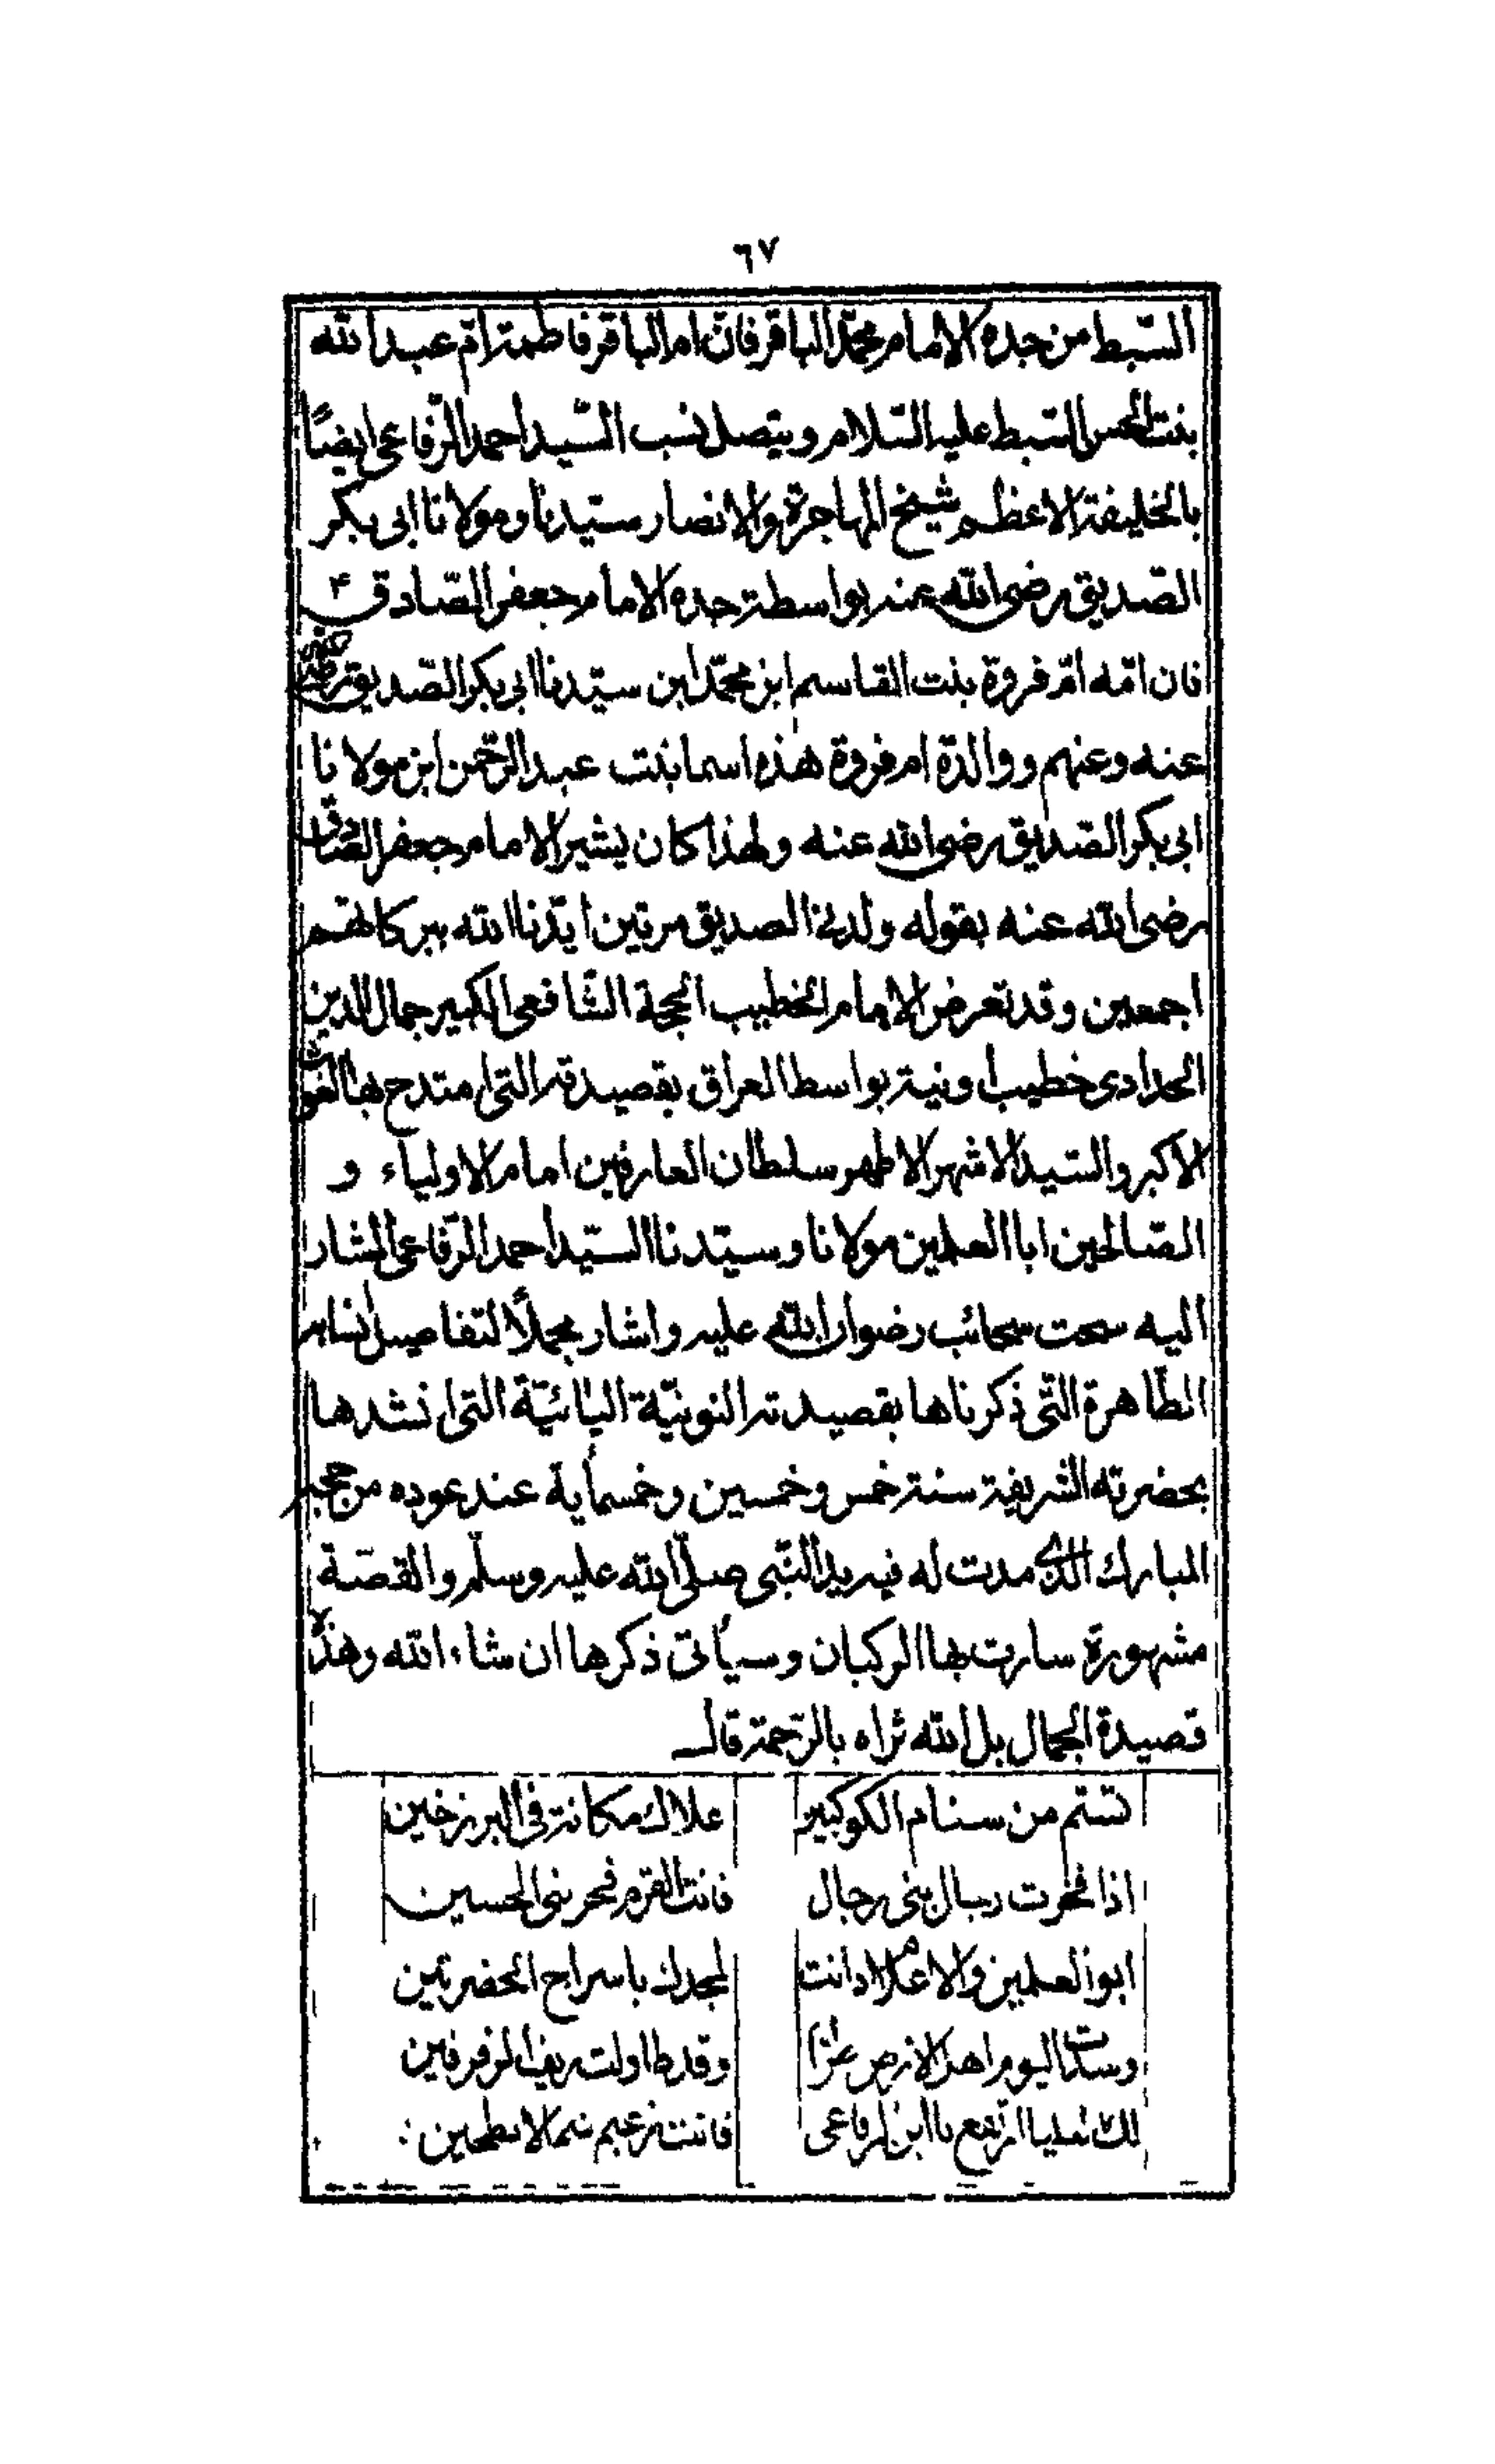 ٦٧
السّبط من جده الامام محمّد الباقر فان ام الباقر فاطمة ام عبد الله
بنت الحسن السّبط عليه السّلام ويتصل نسب السّيد احمد الرّفاعى ايضًا
بالخليفة الاعظم شيخ المهاجرة والانصار سيّدنا ومولانا ابى بكر
الصّديق رضى الله عنه بواسطة جده الامام جعفر الصّادق
فان امّه امّ فروة بنت القاسم ابن محمّد ابن سيّدنا ابى بكر الصّديق رضى الله
عنه وعنهم ووالدة ام فروة هذه اسما بنت عبد الرّحمن ابن مولانا
ابى بكر الصّديق رضى الله عنه ولهذا كان يشير الامام جعفر الصّادق
رضى الله عنه بقوله ولدنى الصديق مرتين ايّدنا الله ببركاتهم
اجمعين وقد تعرض الامام الخطيب الحجة الشّافعى الكبير جمال الدين
الحدادى خطيب اونية بواسط العراق بقصيدته التى امتدح بها الغوث
الاكبر والسّيد الاشهر الاطهر سلطان العارفين امام الاولياء و
الصّالحين ابا العلمين مولانا وسيّدنا السّيد احمد الرّفاعى المشار
اليه سحت سحائب رضوان الله عليه واشار مجملًا لتفاصيل انسابه
الطّاهرة التّى ذكرناها بقصيدته النونيّة اليائيّة التى انشدها
بحضرته الشريفة سنة خمس وخمسين وخمسمأية عند عوده من حجه
المبارك الذى مدت له فيه يد النّبى صلّى الله عليه وسلّم والقصّة
مشهورة سارت بها الركبان وسيأتى ذكرها ان شاء الله وهذه
قصيدة الجمال بل الله ثراه بالرّحمة قال
تسنم من سنام الكوكبين علاك مكانة فى البرزخين
اذا فخرت رجال بنى رجال فانت القرم فخر بنى الحسين
ابو العلمين والاعلام دانت لمجدك يا سراج الحضرتين
وسدت اليوم اهل الارض عزا وقد طاولت ريف الرفرفين
لك العليا ارتفع يا ابن الرفاعى فانت زعيم الابطحين